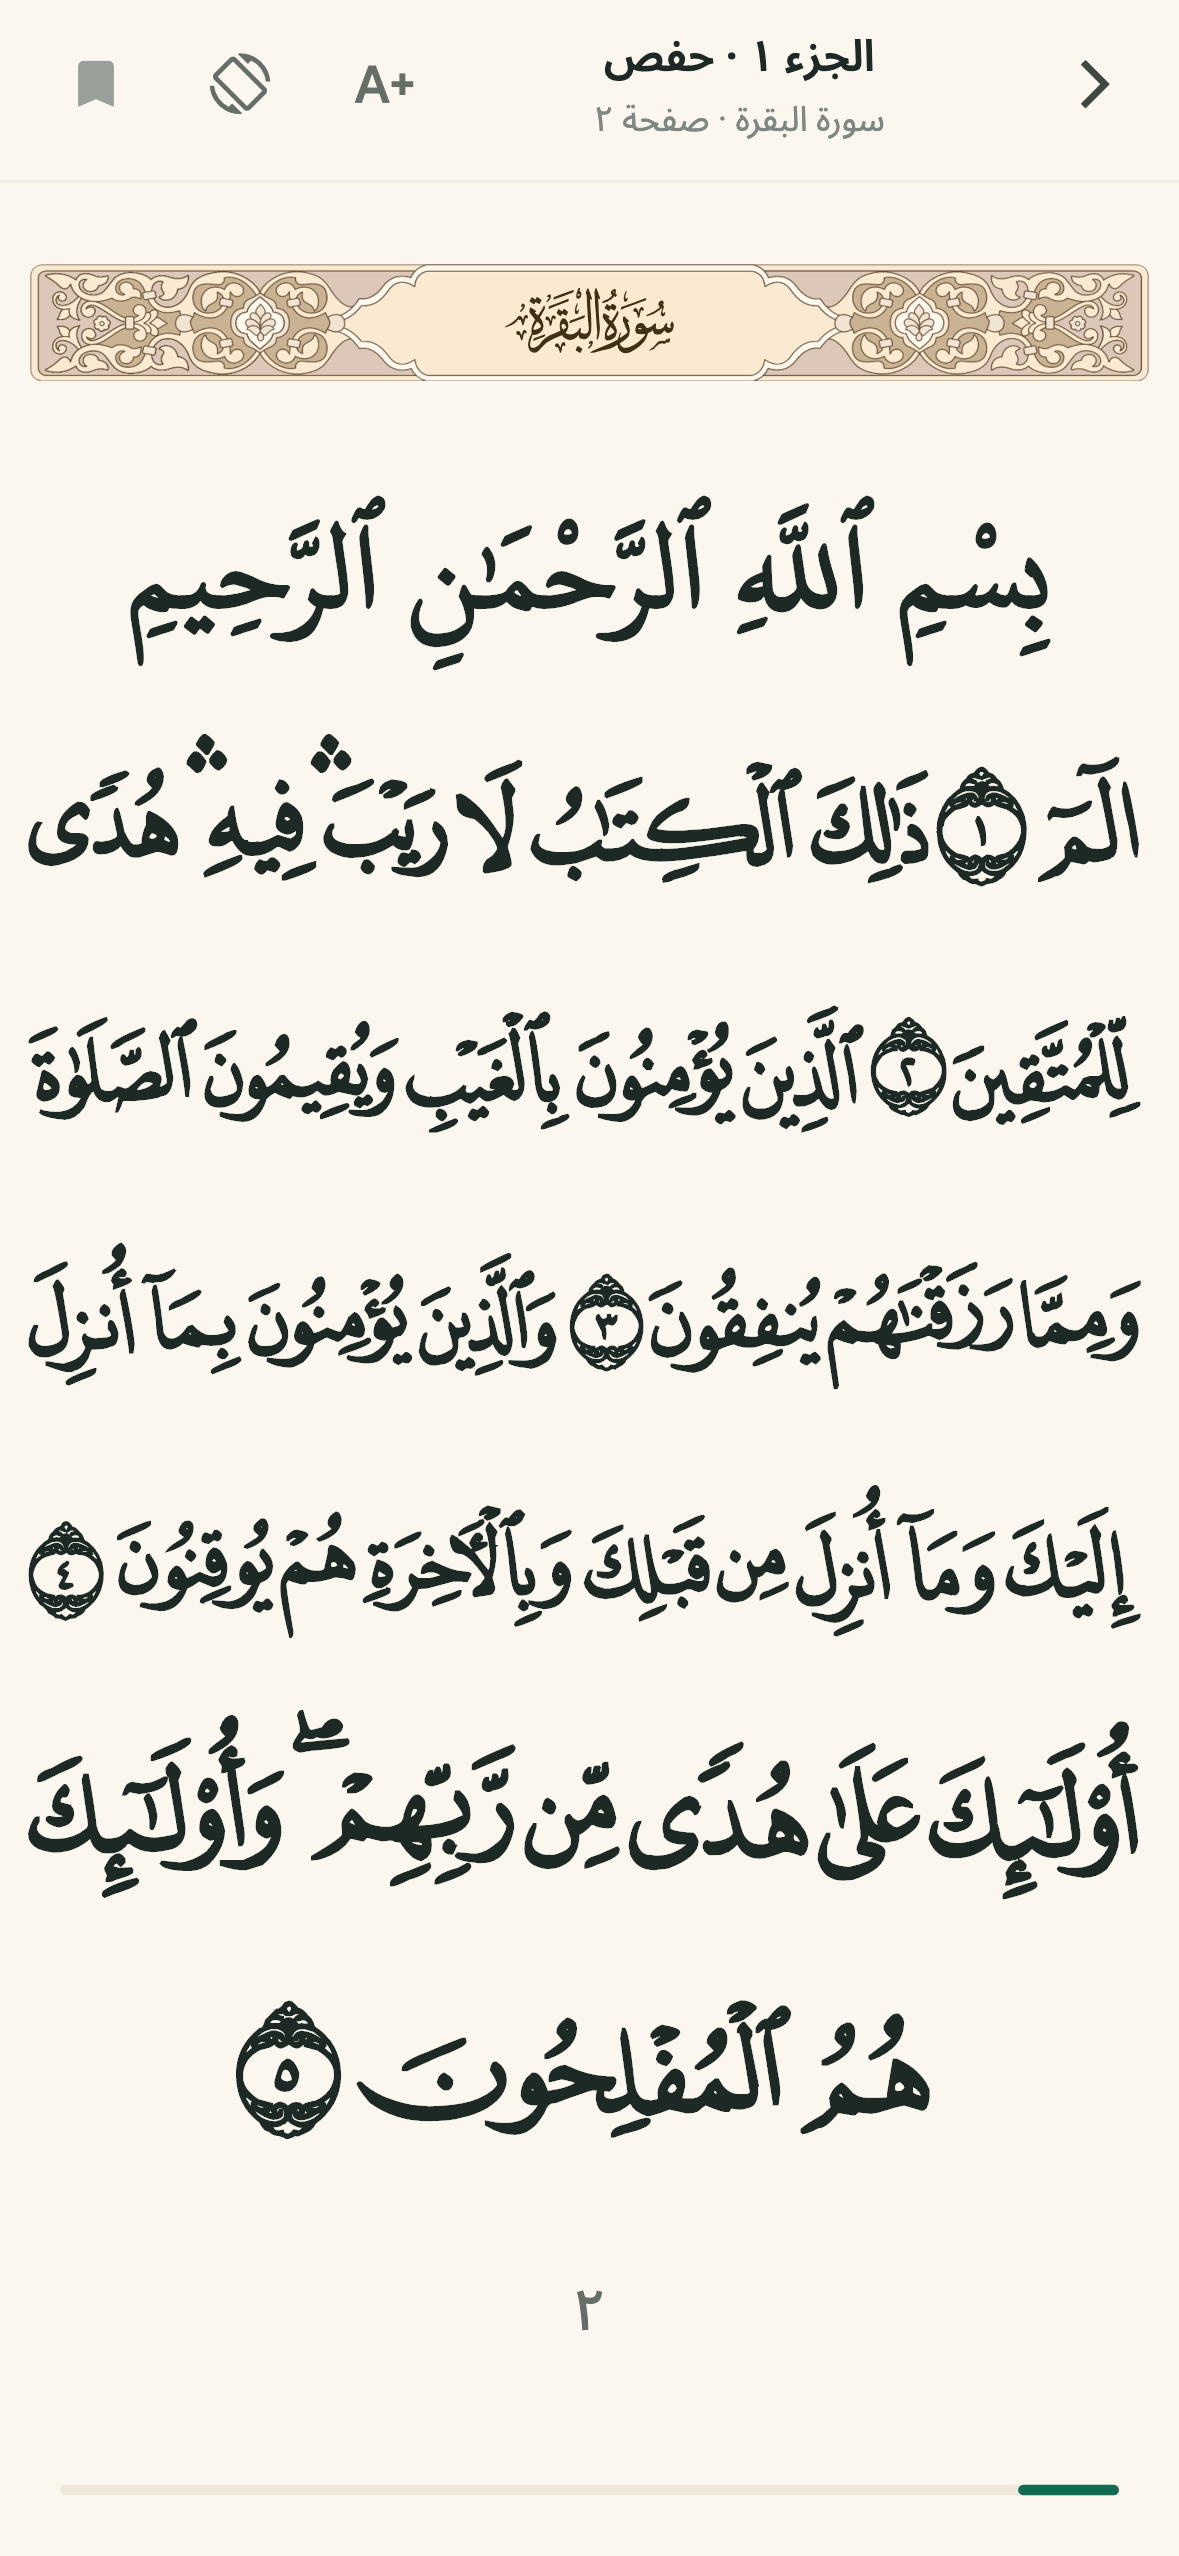 الجزء ١ · حفص
سورة البقرة · صفحة ٢
A+
سُورَةُ البَقَرَةِ
بِسْمِ ٱللَّهِ ٱلرَّحْمَـٰنِ ٱلرَّحِيمِ
الٓمٓ ١ ذَٰلِكَ ٱلْكِتَـٰبُ لَا رَيْبَ ۛ فِيهِ ۛ هُدًى
لِّلْمُتَّقِينَ ٢ ٱلَّذِينَ يُؤْمِنُونَ بِٱلْغَيْبِ وَيُقِيمُونَ ٱلصَّلَوٰةَ
وَمِمَّا رَزَقْنَـٰهُمْ يُنفِقُونَ ٣ وَٱلَّذِينَ يُؤْمِنُونَ بِمَآ أُنزِلَ
إِلَيْكَ وَمَآ أُنزِلَ مِن قَبْلِكَ وَبِٱلْأَخِرَةِ هُمْ يُوقِنُونَ ٤
أُوْلَـٰٓئِكَ عَلَىٰ هُدًى مِّن رَّبِّهِمْ ۖ وَأُوْلَـٰٓئِكَ
هُمُ ٱلْمُفْلِحُونَ ٥
٢